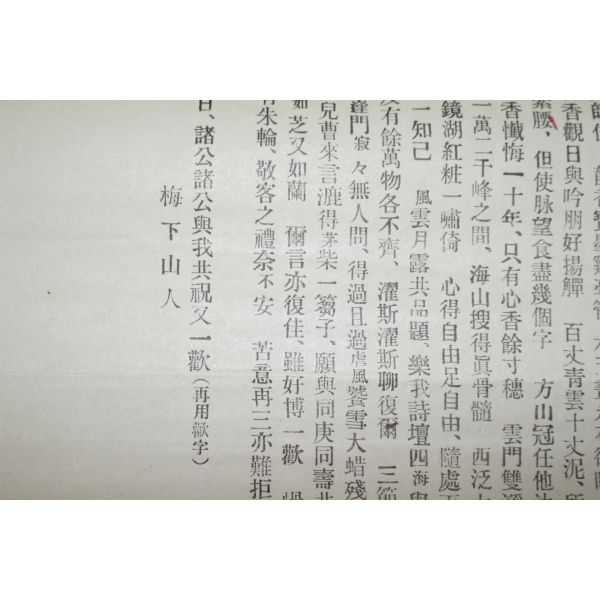 香觀日與吟朋好揚觶　百丈青雲十丈泥、
腰、但使脉望食盡幾個字　方山冠任他
香懺悔一十年、只有心香餘寸穗　雲門雙
一萬二千峰之間、海山搜得眞骨髓　西泛
鏡湖紅粧一嘯倚　心得自由足自由、隨處
一知己　風雲月露共品題、樂我詩壇四海
有餘萬物各不齊、濯斯濯斯聊復爾　三
門寂々無人問、得過且過虐風饕雪大蜡殘
兒曹來言漉得茅柴一蒭子、願與同庚同壽
如芝又如蘭　爾言亦復佳、雖好博一歡
朱輪、敬客之禮奈不安　苦意再三亦難拒
日、諸公諸公與我共祝又一歡(再用歡字)
梅下山人